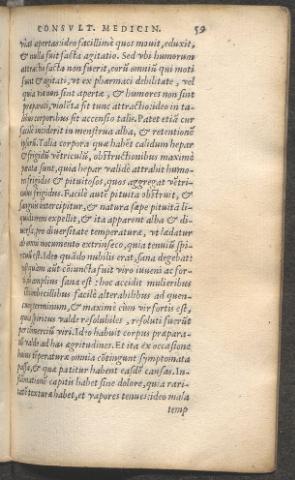 CONSVLT. MEDICIN. 59
viæ apertæ: ideo facillimè quos mouit, eduxit,
& nulla fuit facta agitatio. Sed vbi humorum
attractio facta non fuerit, eorū omniū qui moti
sunt & agitati, vt ex pharmaci debilitate, vel
quia viæ non sint apertæ, & humores non sint
præparati, violēta fit tunc attractio: ideo in ta-
libus corporibus fit accensio talis. Patet etiā cur
facilè inciderit in menstrua alba, & retentionē
Talia corpora quæ habēt calidum hepar
& frigidū vētriculū, obstructionibus maximè
parata sunt, quia hepar validè attrahit humo-
res frigidos & pituitosos, quos aggregat vētri-
culus frigidus. Facilè autē pituita obstruit, &
sanguis intercipitur, & natura sæpe pituitā li-
quidiorem expellit, & ita apparent alba & di-
uersa, pro diuersitate temperaturæ, vt lædatur
ab omni nocumento extrinseco, quia tenuiū spi-
rituū est. Ideo quādo nubilis erat, sana degebat:
postquam aūt cōiuncta fuit viro iuueni ac for-
ti, nō amplius sana est: hoc accidit mulieribus
imbecillibus facilè alterabilibus ad quen-
cunque terminum, & maximè cùm vir fortis est,
quia spiritus valde resolubiles, resoluti fuerūt
per commerciū viri. Ideo habuit corpus præpara-
tū valde ad has ægritudines. Et ita ex occasione
huius tēperaturæ omnia cōtingunt symptomata
passa, & quæ patitur habent easdē causas. In-
flammationē capitis habet sine dolore, quia rari-
tatē texturæ habet, et vapores tenues: ideo mala
temp